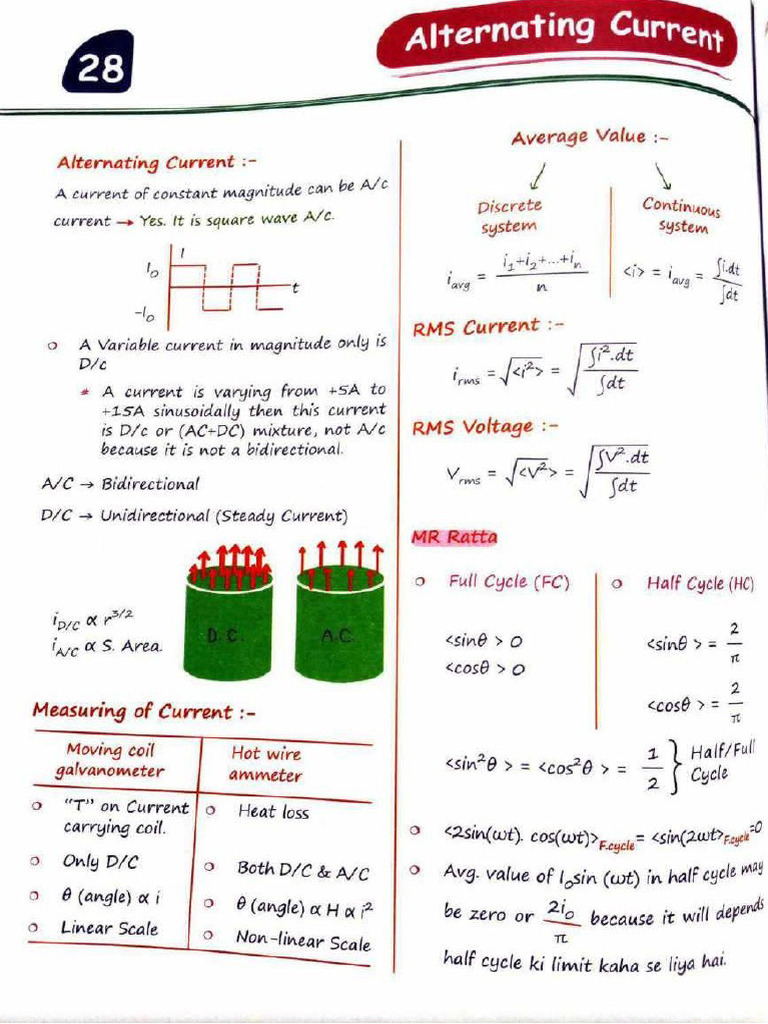 28
Alternating Current
Alternating Current :-
A current of constant magnitude can be A/c
current → Yes. It is square wave A/c.
I
I₀
t
-I₀
○ A Variable current in magnitude only is
D/c
* A current is varying from +5A to
+15A sinusoidally then this current
is D/c or (AC+DC) mixture, not A/c
because it is not a bidirectional.
A/C → Bidirectional
D/C → Unidirectional (Steady Current)
i_D/C ∝ r^3/2
i_A/C ∝ S. Area.
D.C.
A.C.
Measuring of Current :-
Moving coil
galvanometer
Hot wire
ammeter
○ "T" on Current
carrying coil.
○ Heat loss
○ Only D/C
○ Both D/C & A/C
○ θ (angle) ∝ i
○ θ (angle) ∝ H ∝ i²
○ Linear Scale
○ Non-linear Scale
Average Value :-
Discrete
system
Continuous
system
i_avg = (i₁+i₂+...+i_n)/n
<i> = i_avg = ∫i.dt/∫dt
RMS Current :-
i_rms = √<i²> = √(∫i².dt/∫dt)
RMS Voltage :-
V_rms = √<V²> = √(∫V².dt/∫dt)
MR Ratta
○ Full Cycle (FC)
<sinθ > 0
<cosθ > 0
○ Half Cycle (HC)
<sinθ > = 2/π
<cosθ > = 2/π
<sin²θ > = <cos²θ > = 1/2 } Half/Full
Cycle
○ <2sin(ωt). cos(ωt)>_F.cycle = <sin(2ωt>_F.cycle=0
○ Avg. value of I₀sin (ωt) in half cycle may
be zero or 2i₀/π because it will depends
half cycle ki limit kaha se liya hai.